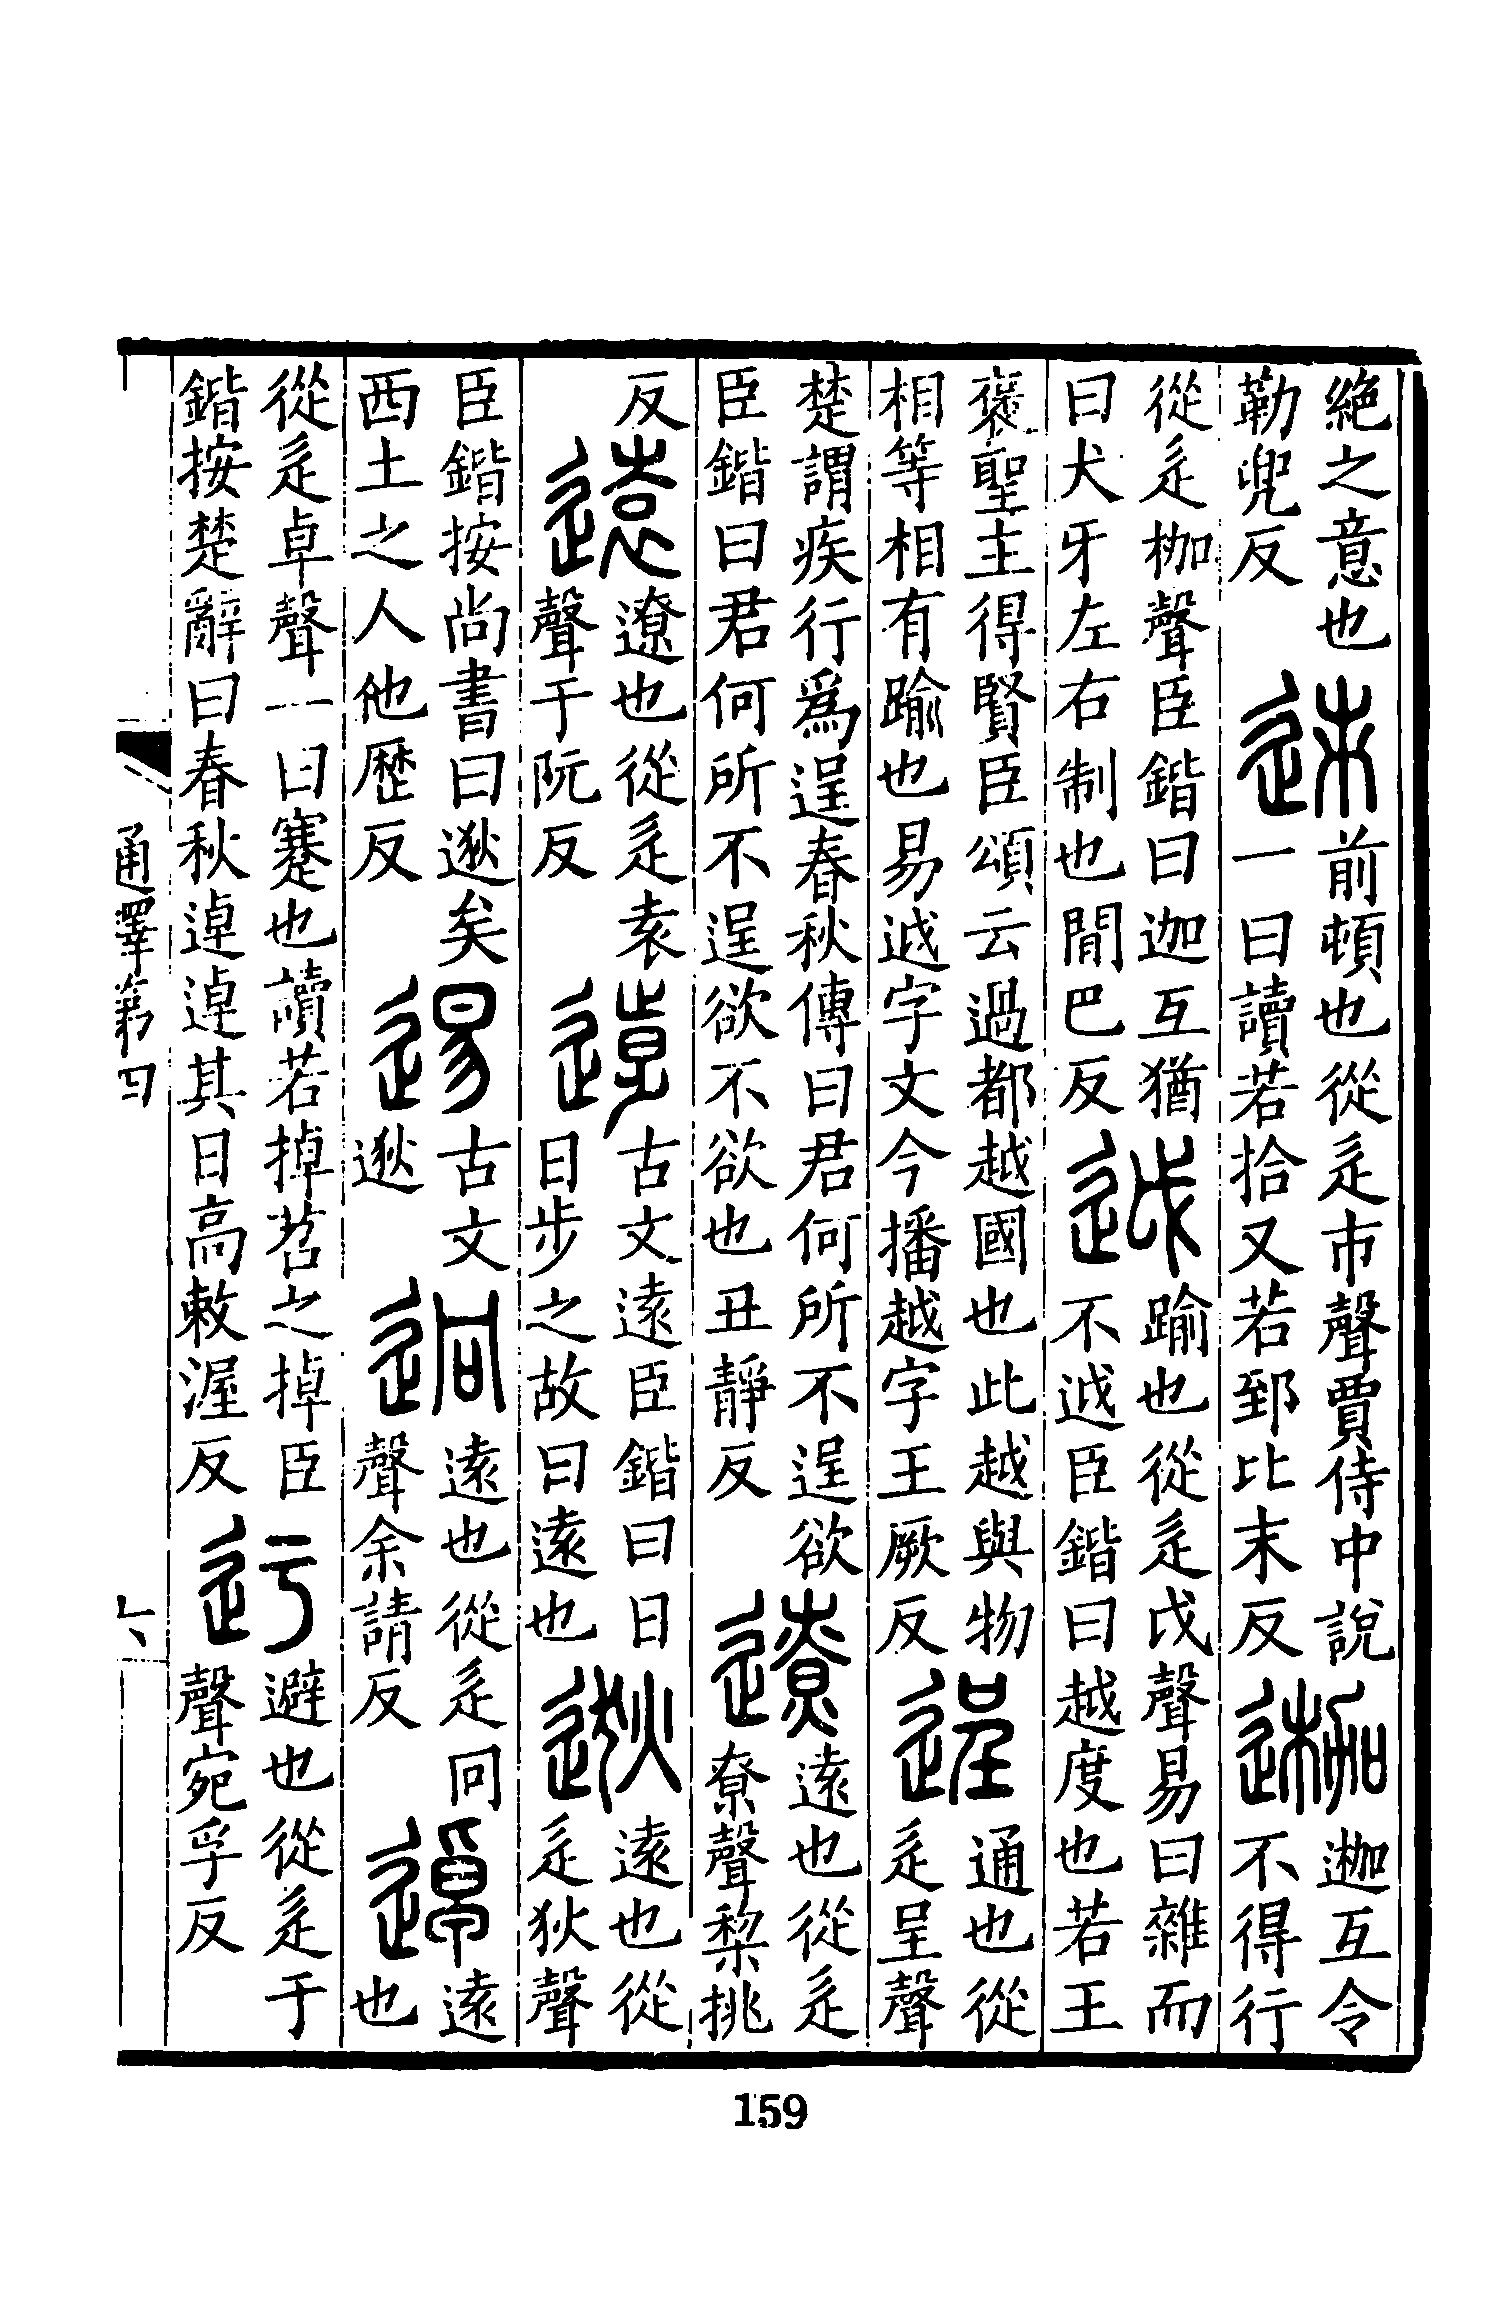 絶之意也
勒兜反
𨒪
前頓也從辵巿聲賈侍中說
一曰讀若拾又若郅比末反
𨖭
迦互令
不得行
從辵枷聲臣鍇曰迦互猶
曰犬牙左右制也閒巴反
𨒋
踰也從辵戉聲易曰雜而
不𨒋臣鍇曰越度也若王
襃聖主得賢臣頌云過都越國也此越與物
相等相有踰也易𨒋字文今播越字王厥反
逞
通也從
辵呈聲
楚謂疾行爲逞春秋傳曰君何所不逞欲
臣鍇曰君何所不逞欲不欲也丑靜反
遼
遠也從辵
尞聲棃挑
反
遠
遼也從辵袁
聲于阮反
古文遠臣鍇曰日
日步之故曰遠也
逖
遠也從
辵狄聲
臣鍇按尚書曰逖矣
西土之人他歷反
逷
古文
逖
迥
遠也從辵冋
聲余請反
逴
遠
也
從辵卓聲一曰蹇也讀若掉苕之掉臣
鍇按楚辭曰春秋逴逴其日高敕渥反
迂
避也從辵于
聲宛孚反
通釋第四
六
159